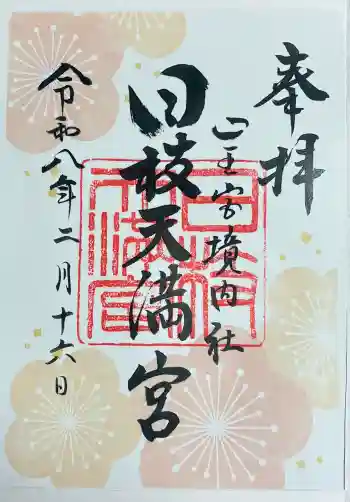 奉拝
山王宮境内社
日枝天満宮
令和八年二月十六日
日枝
天満宮